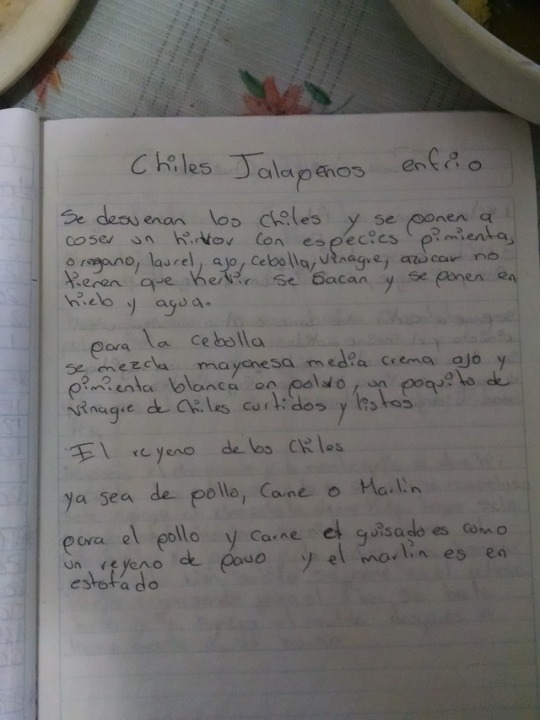 Chiles Jalapeños enfrio
Se desvenan los chiles y se ponen a
coser un hirvor con especies pimienta,
oregano, laurel, ajo, cebolla, vinagre, azucar no
tienen que hervir se sacan y se ponen en
hielo y agua.
para la cebolla
se mezcla mayonesa media crema ajo y
pimienta blanca en polvo, un poquito de
vinagre de chiles curtidos y listos
El reyeno de los chiles
ya sea de pollo, Carne o Marlin
para el pollo y carne el guisado es como
un reyeno de pavo y el marlin es en
estofado